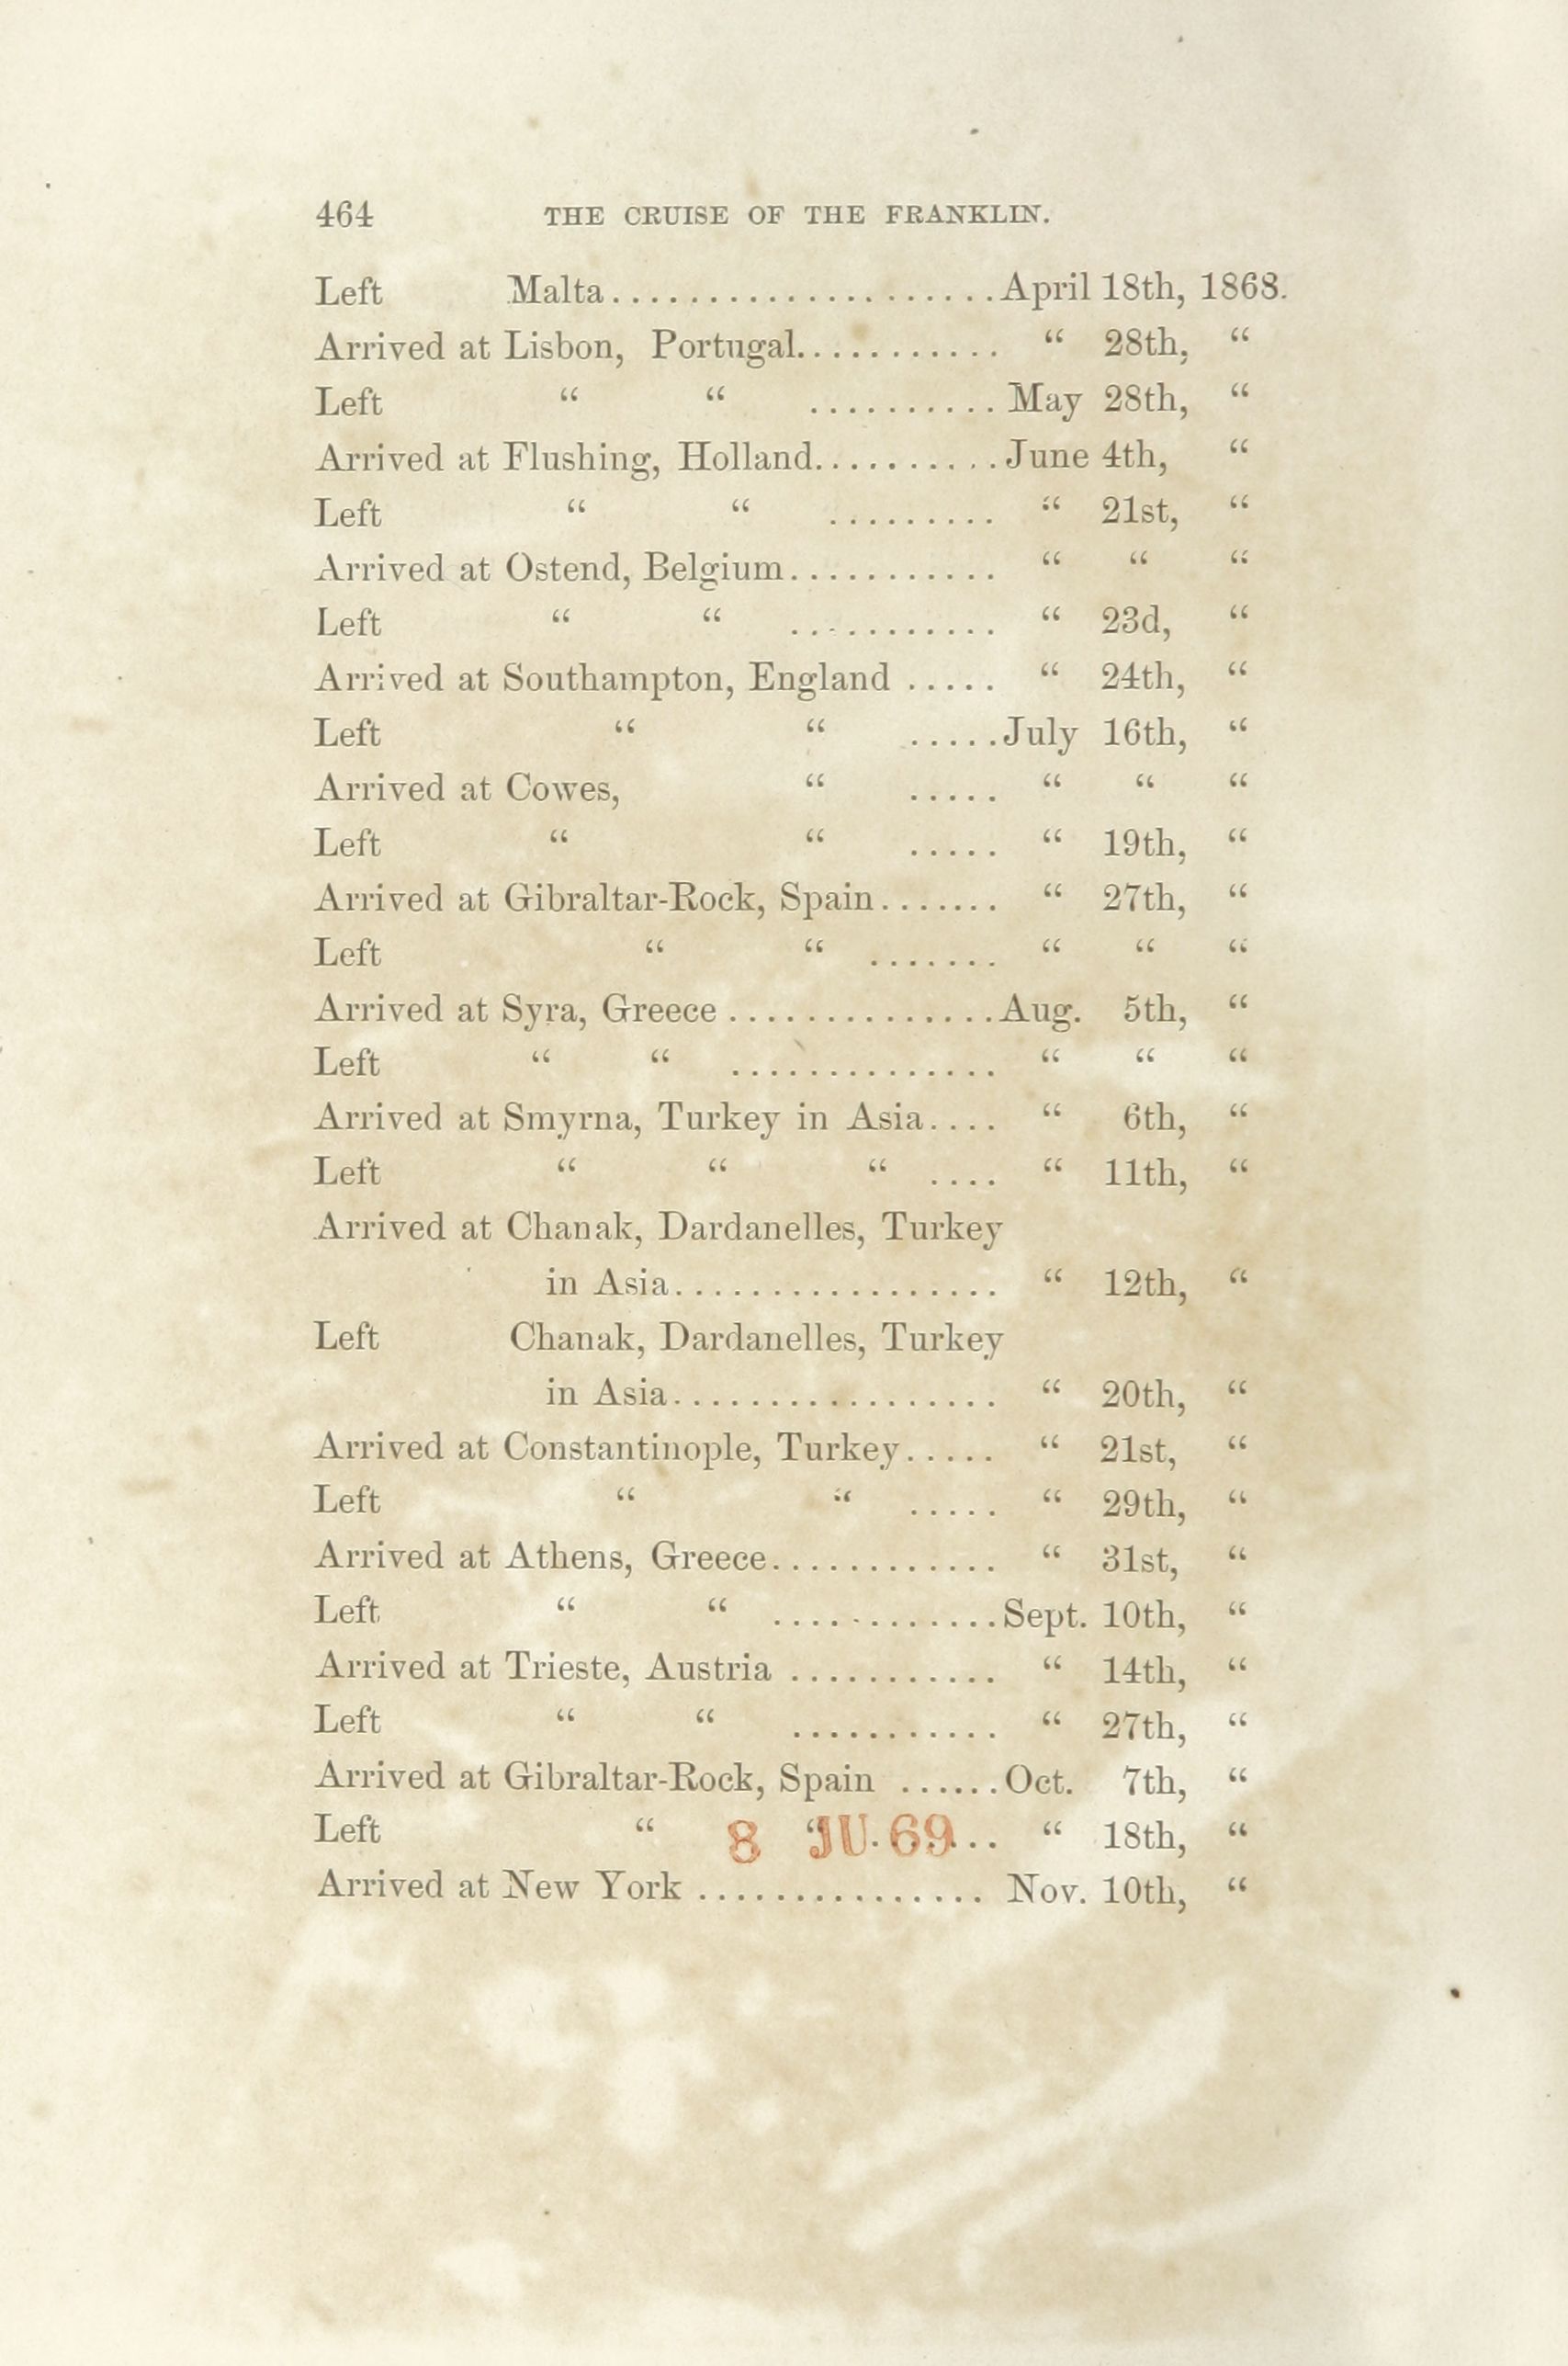 464 THE CRUISE OF THE FRANKLIN.
Left Malta.....................April 18th, 1868.
Arrived at Lisbon, Portugal........... “ 28th, “
Left “ “ ..........May 28th, “
Arrived at Flushing, Holland..........June 4th, “
Left “ “ ......... “ 21st, “
Arrived at Ostend, Belgium........... “ “ “
Left “ “ ........... “ 23d, “
Arrived at Southampton, England ..... “ 24th, “
Left “ “ .....July 16th, “
Arrived at Cowes, “ ..... “ “ “
Left “ “ ..... “ 19th, “
Arrived at Gibraltar-Rock, Spain....... “ 27th, “
Left “ “ ....... “ “ “
Arrived at Syra, Greece ..............Aug. 5th, “
Left “ “ .............. “ “ “
Arrived at Smyrna, Turkey in Asia.... “ 6th, “
Left “ “ “ .... “ 11th, “
Arrived at Chanak, Dardanelles, Turkey
in Asia................. “ 12th, “
Left Chanak, Dardanelles, Turkey
in Asia................. “ 20th, “
Arrived at Constantinople, Turkey..... “ 21st, “
Left “ “ ..... “ 29th, “
Arrived at Athens, Greece............ “ 31st, “
Left “ “ ............Sept. 10th, “
Arrived at Trieste, Austria ........... “ 14th, “
Left “ “ ........... “ 27th, “
Arrived at Gibraltar-Rock, Spain ......Oct. 7th, “
Left “ “ ...... “ 18th, “
8 JU 69
Arrived at New York ............... Nov. 10th, “